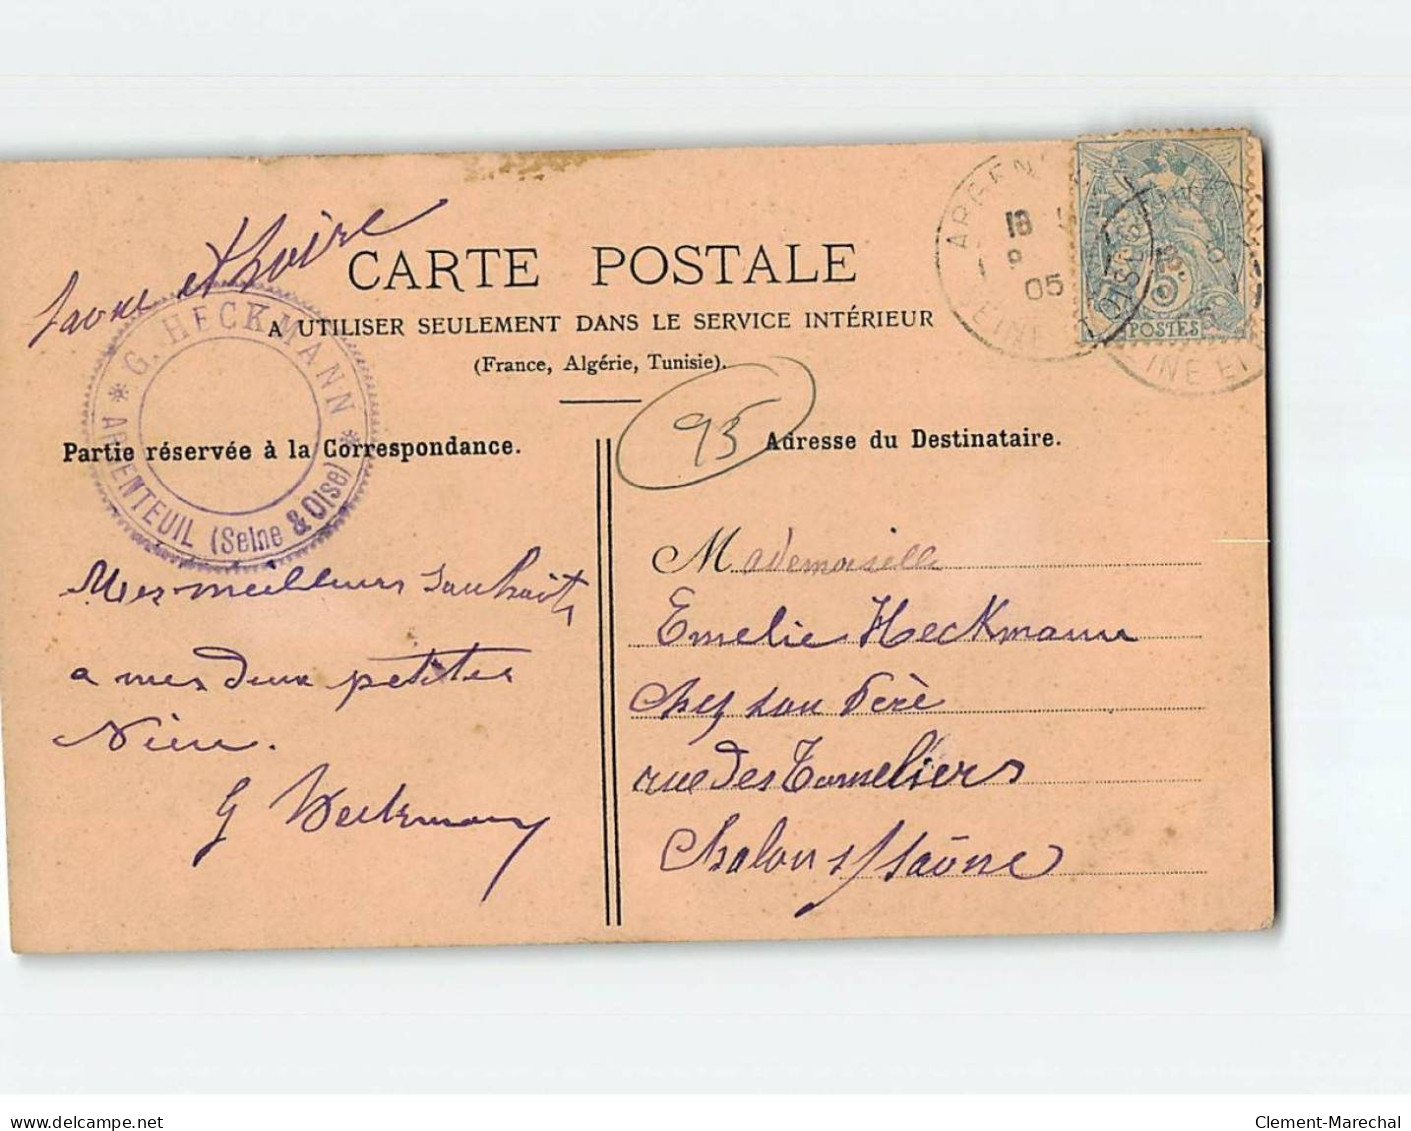 Saone et Loire
CARTE POSTALE
A UTILISER SEULEMENT DANS LE SERVICE INTÉRIEUR
(France, Algérie, Tunisie).
* G. HECKMANN *
ARGENTEUIL (Seine & Oise)
ARGEN
18
9
05
POSTES
INE ET
95
Partie réservée à la Correspondance.
Mes meilleurs souhaits
a mes deux petites
Nièce.
G Heckmann
Adresse du Destinataire.
Mademoiselle
Emelie Heckmann
Chez son Père
rue des Tonneliers
Chalon s/ saône
www.delcampe.net
Clement-Marechal